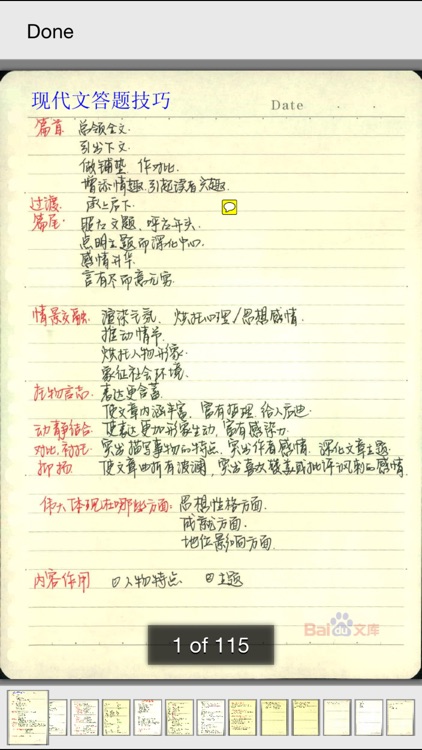 Done
现代文答题技巧
Date . .
篇首 总领全文.
引出下文.
做铺垫 作对比.
增添情趣, 引起读者兴趣.
过渡. 承上启下.
篇尾. 照应文题、呼应开头.
点明主题而深化中心.
感情升华.
言有尽而意无穷.
情景交融. 渲染气氛. 烘托心理/思想感情.
推动情节.
烘托人物形象.
象征社会环境.
托物言志. 表达更含蓄.
使文章内涵丰富, 富有哲理, 给人启迪.
动静结合. 使表达更加形象生动, 富有感染力.
对比、衬托. 突出描写事物的特点, 突出作者感情, 深化文章主题.
抑扬 使文章曲折有波澜, 突出喜欢赞美或批评讽刺的感情.
伟大体现在哪些方面: 思想性格方面.
成就方面.
地位影响方面.
内容作用 ①人物特点 ②主题
Baidu文库
1 of 115